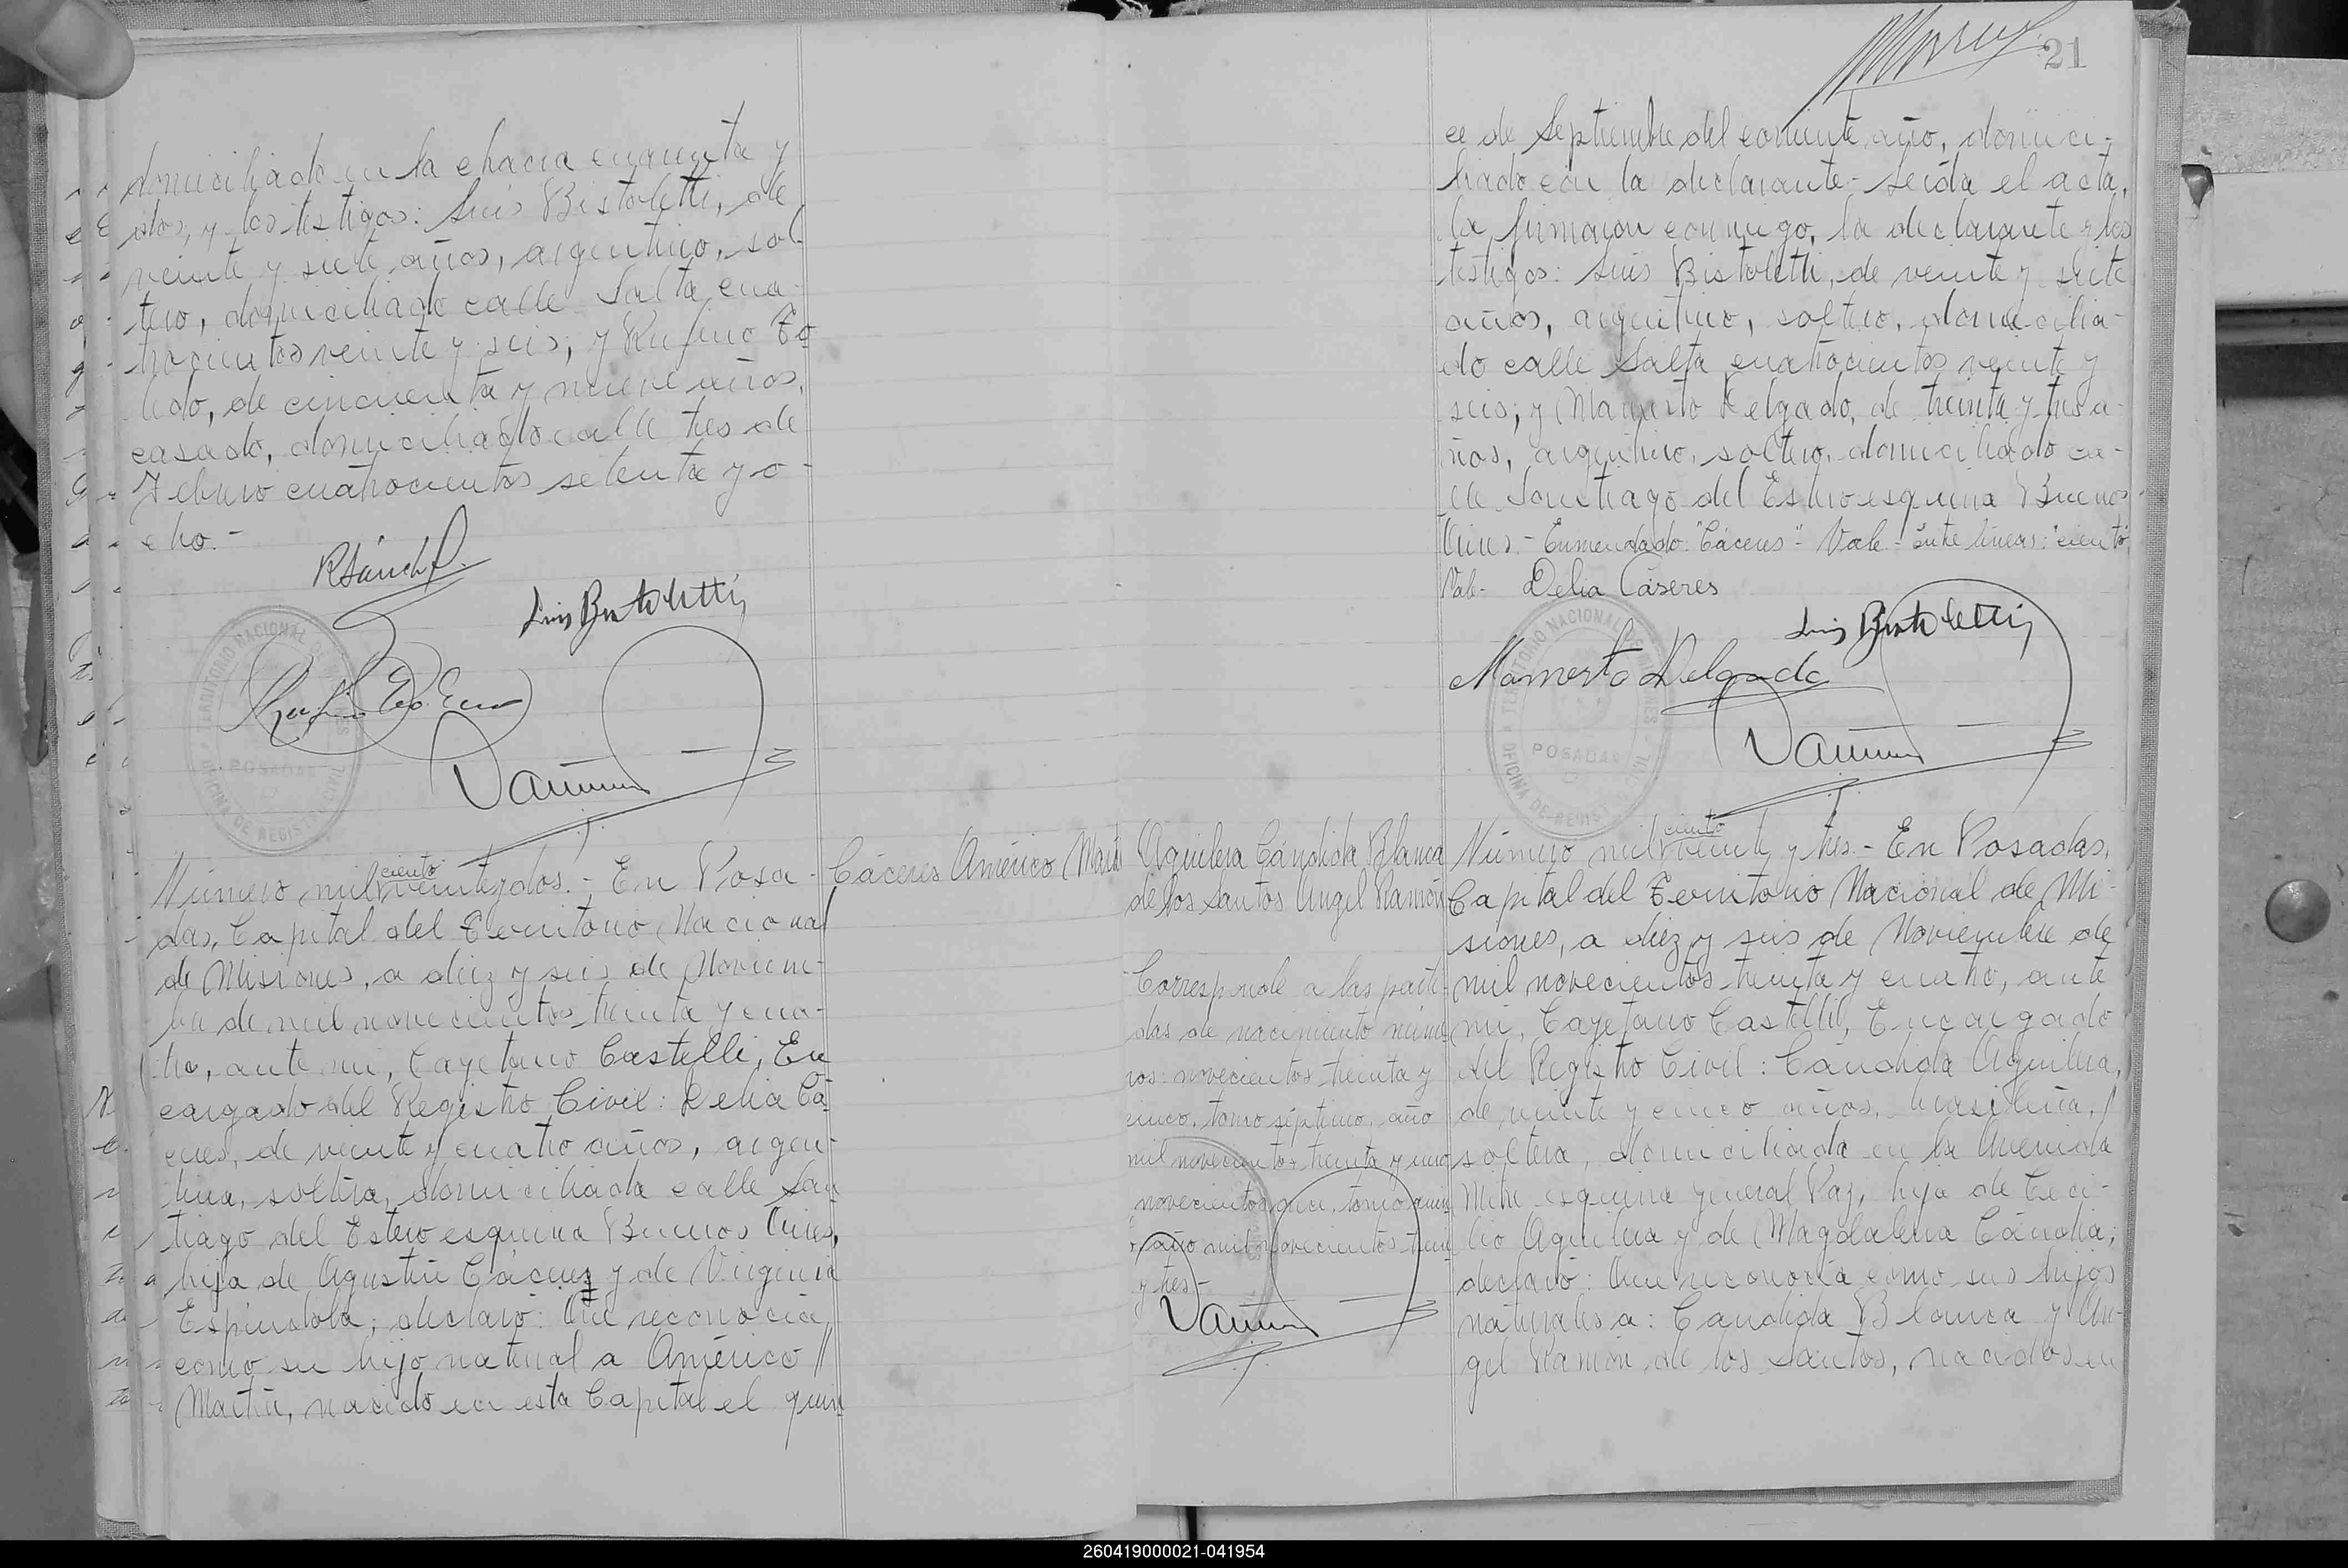 domiciliado en la chacra cuarenta y
dos, y los testigos: Luis Bistoletti, de
veinte y siete años, argentino, sol
tero, domiciliado calle Salta cua-
trocientos veinte y seis; y Rufino To
ledo, de cincuenta y nueve años,
casado, domiciliado calle tres de
Febrero cuatrocientos setenta y o-
cho.-
Luis Bistoletti
TERRITORIO NACIONAL DE MISIONES
POSADAS
OFICINA DE REGISTRO CIVIL
Número mil ciento veinte y dos.- En Posa-
das, Capital del Territorio Nacional
de Misiones, a diez y seis de Noviem-
bre de mil novecientos treinta y cua-
tro, ante mi, Cayetano Castelli, En
cargado del Registro Civil: Delia Cá-
ceres, de veinte y cuatro años, argen-
tina, soltera, domiciliada calle San
tiago del Estero esquina Buenos Aires,
hija de Agustín Cáceres y de Virginia
Espíndola; declaró: Que reconocía
como su hijo natural a Américo //
Martín, nacido en esta Capital el quin
Cáceres Américo Martí
21
ce de Septiembre del corriente año, domici-
liado con la declarante.- Leída el acta,
la firmaron conmigo, la declarante y los
testigos: Luis Bistoletti, de veinte y siete
años, argentino, soltero, domicilia-
do calle Salta cuatrocientos veinte y
seis; y Mamerto Delgado, de treinta y tres a-
ños, argentino, soltero, domiciliado ca-
lle Santiago del Estero esquina Buenos
Aires.- Enmendado: "Cáceres"- Vale- Entre líneas: "ciento",
Vale- Delia Cáseres
Luis Bistoletti
Mamerto Delgado
TERRITORIO NACIONAL DE MISIONES
POSADAS
OFICINA DE REGISTRO CIVIL
Aguilera Cándida Blanca
de los Santos Angel Ramón
Corresponde a las parti-
das de nacimiento núme
ros: novecientos treinta y
cinco, tomo séptimo, año
mil novecientos treinta y uno
novecientos tomo
año mil novecientos trein
y tres-
Número mil ciento veinte y tres.- En Posadas,
Capital del Territorio Nacional de Mi-
siones, a diez y seis de Noviembre de
mil novecientos treinta y cuatro, ante
mi, Cayetano Castelli, Encargado
del Registro Civil: Cándida Aguilera,
de veinte y cinco años, brasileña, /
soltera, domiciliada en la Avenida
Mitre esquina general Paz, hija de Ceci-
lio Aguilera y de Magdalena Cándia;
declaró: Que reconocía como sus hijos
naturales a: Candida Blanca y An-
gel Ramón de los Santos, nacidos en